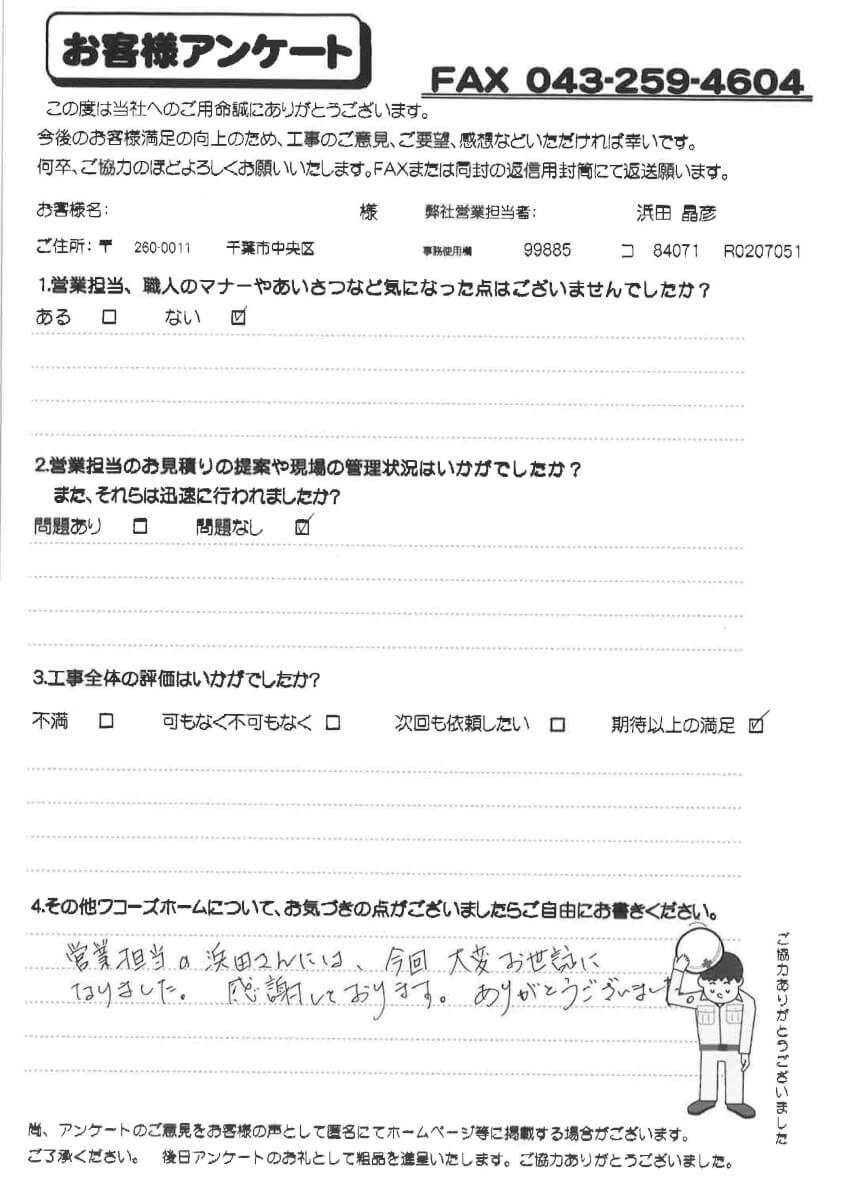 お客様アンケート
FAX 043-259-4604
この度は当社へのご用命誠にありがとうございます。
今後のお客様満足の向上のため、工事のご意見、ご要望、感想などいただければ幸いです。
何卒、ご協力のほどよろしくお願いいたします。FAXまたは同封の返信用封筒にて返送願います。
お客様名: 様 弊社営業担当者: 浜田 晶彦
ご住所: 〒 260-0011 千葉市中央区 事務使用欄 99885 コ 84071 R0207051
1.営業担当、職人のマナーやあいさつなど気になった点はございませんでしたか?
ある □ ない ☑
2.営業担当のお見積りの提案や現場の管理状況はいかがでしたか?
また、それらは迅速に行われましたか?
問題あり □ 問題なし ☑
3.工事全体の評価はいかがでしたか?
不満 □ 可もなく不可もなく □ 次回も依頼したい □ 期待以上の満足 ☑
4.その他ワコーズホームについて、お気づきの点がございましたらご自由にお書きください。
営業担当の浜田さんには、今回大変お世話に
なりました。 感謝しております。 ありがとうございました。
ご協力ありがとうございました
尚、アンケートのご意見をお客様の声として匿名にてホームページ等に掲載する場合がございます。
ご了承ください。 後日アンケートのお礼として粗品を進呈いたします。ご協力ありがとうございました。